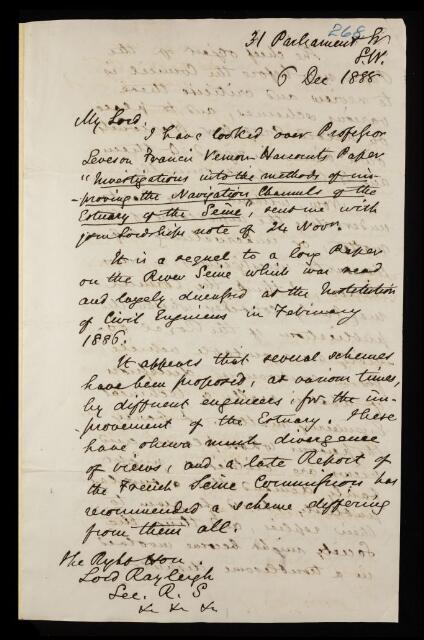 268
31 Parliament St
S.W.
6 Dec 1888
My Lord,
I have looked over Professor
Leveson Francis Vernon-Harcourts Paper
"Investigations into the methods of im-
-proving the Navigation Channels of the
Estuary of the Seine", sent me with
your Lordships note of 24 Novr.
It is a sequel to a long Paper
on the River Seine which was read
and largely discussed at the Institution
of Civil Engineers in February
1886.
It appears that several schemes
have been proposed, at various times,
by different engineers, for the im-
-provement of the Estuary. These
have shewn much divergence
of views, and a late Report of
the French Seine Commission has
recommended a scheme differing
from them all.
The Right Hon.
Lord Rayleigh
Sec. R. S
&c &c &c